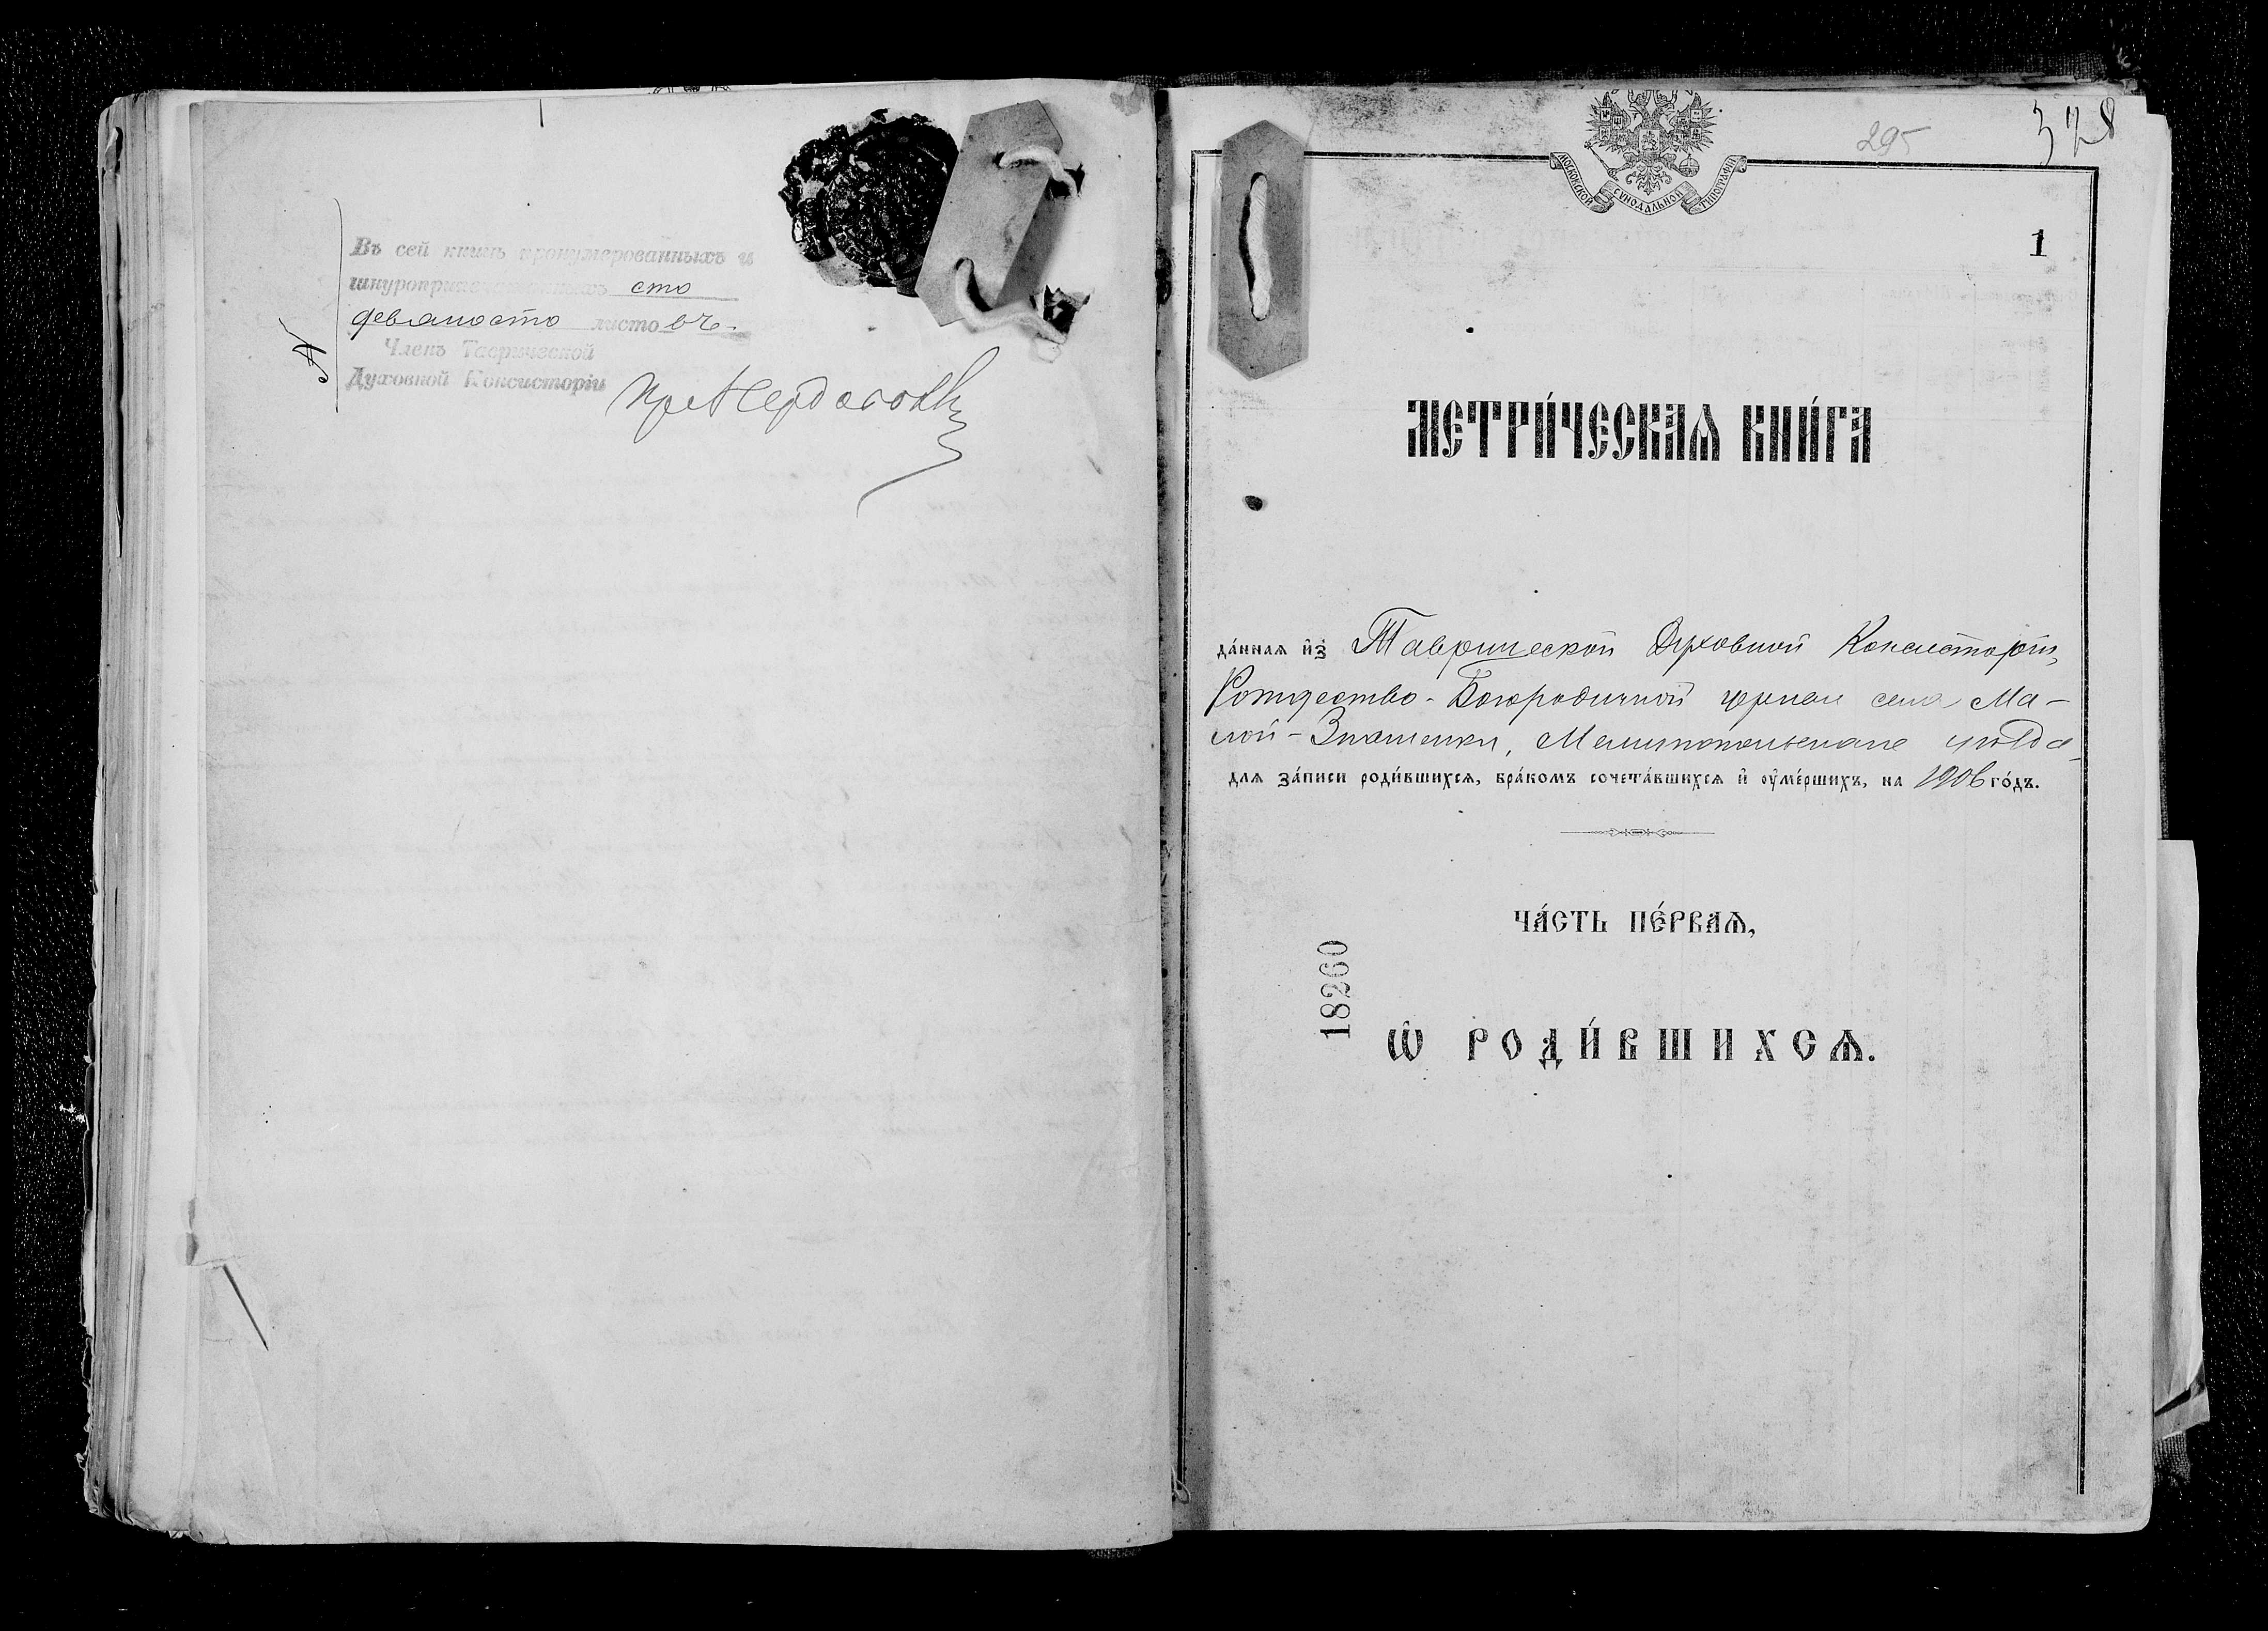 Въ сей книгѣ пронумерованныхъ и
шнуроприпечатанныхъ сто
девяносто листовъ.
Членъ Таврической
Духовной Консисторіи
МОСКОВСКОЙ СѴНОДАЛЬНОЙ ТИПОГРАФІИ
295
328
1
МЕТРИ́ЧЕСКАѦ КНИ́ГА
да́ннаѧ и҆з̾ Таврической Духовной Консисторіи,
Рождество-Богородичной церкви села Ма-
лой-Знаменки, Мелитопольскаго уѣзда
для за́писи роди́вшихсѧ, бра́комъ сочета́вшихсѧ и҆ ᲂу҆ме́ршихъ, на 1906 го́дъ.
ЧА́СТЬ ПЕ́РВАѦ,
18260
Ѽ РОДИ́ВШИХСѦ.